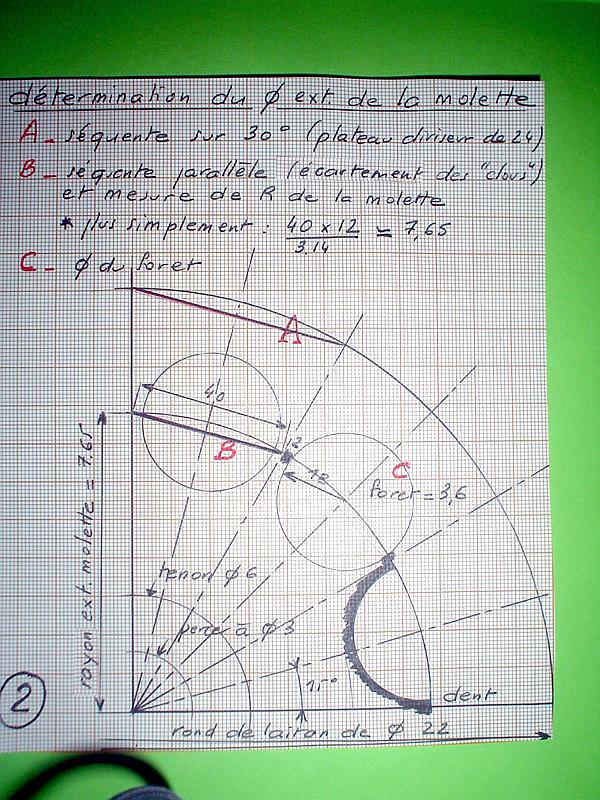 détermination du φ ext. de la molette
A - séquente sur 30° (plateau diviseur de 24)
B - séquente parallèle (écartement des "clous")
et mesure de R de la molette
* plus simplement : 40 x 12 / 3.14 ≃ 7,65
C - φ du foret
A
40
B
12
18
C
foret = 3,6
rayon ext. molette = 7.65
tenon φ 6
percé à φ 3
15°
dent
rond de laiton de φ 22
2